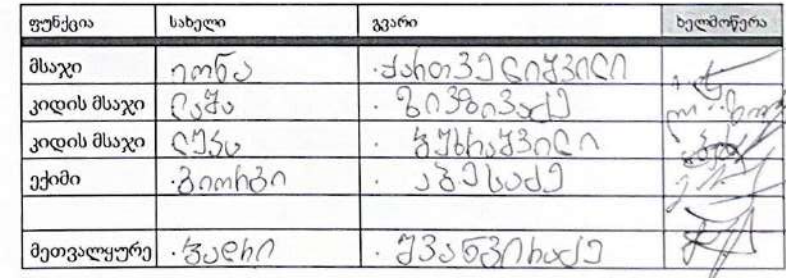 ფუნქცია სახელი გვარი ხელმოწერა
მსაჯი იონა ქართველიშვილი
კიდის მსაჯი ლაშა ზივზივაძე
კიდის მსაჯი ლუკა ბუხრაშვილი
ექიმი გიორგი აბესაძე
მეთვალყურე ბადრი